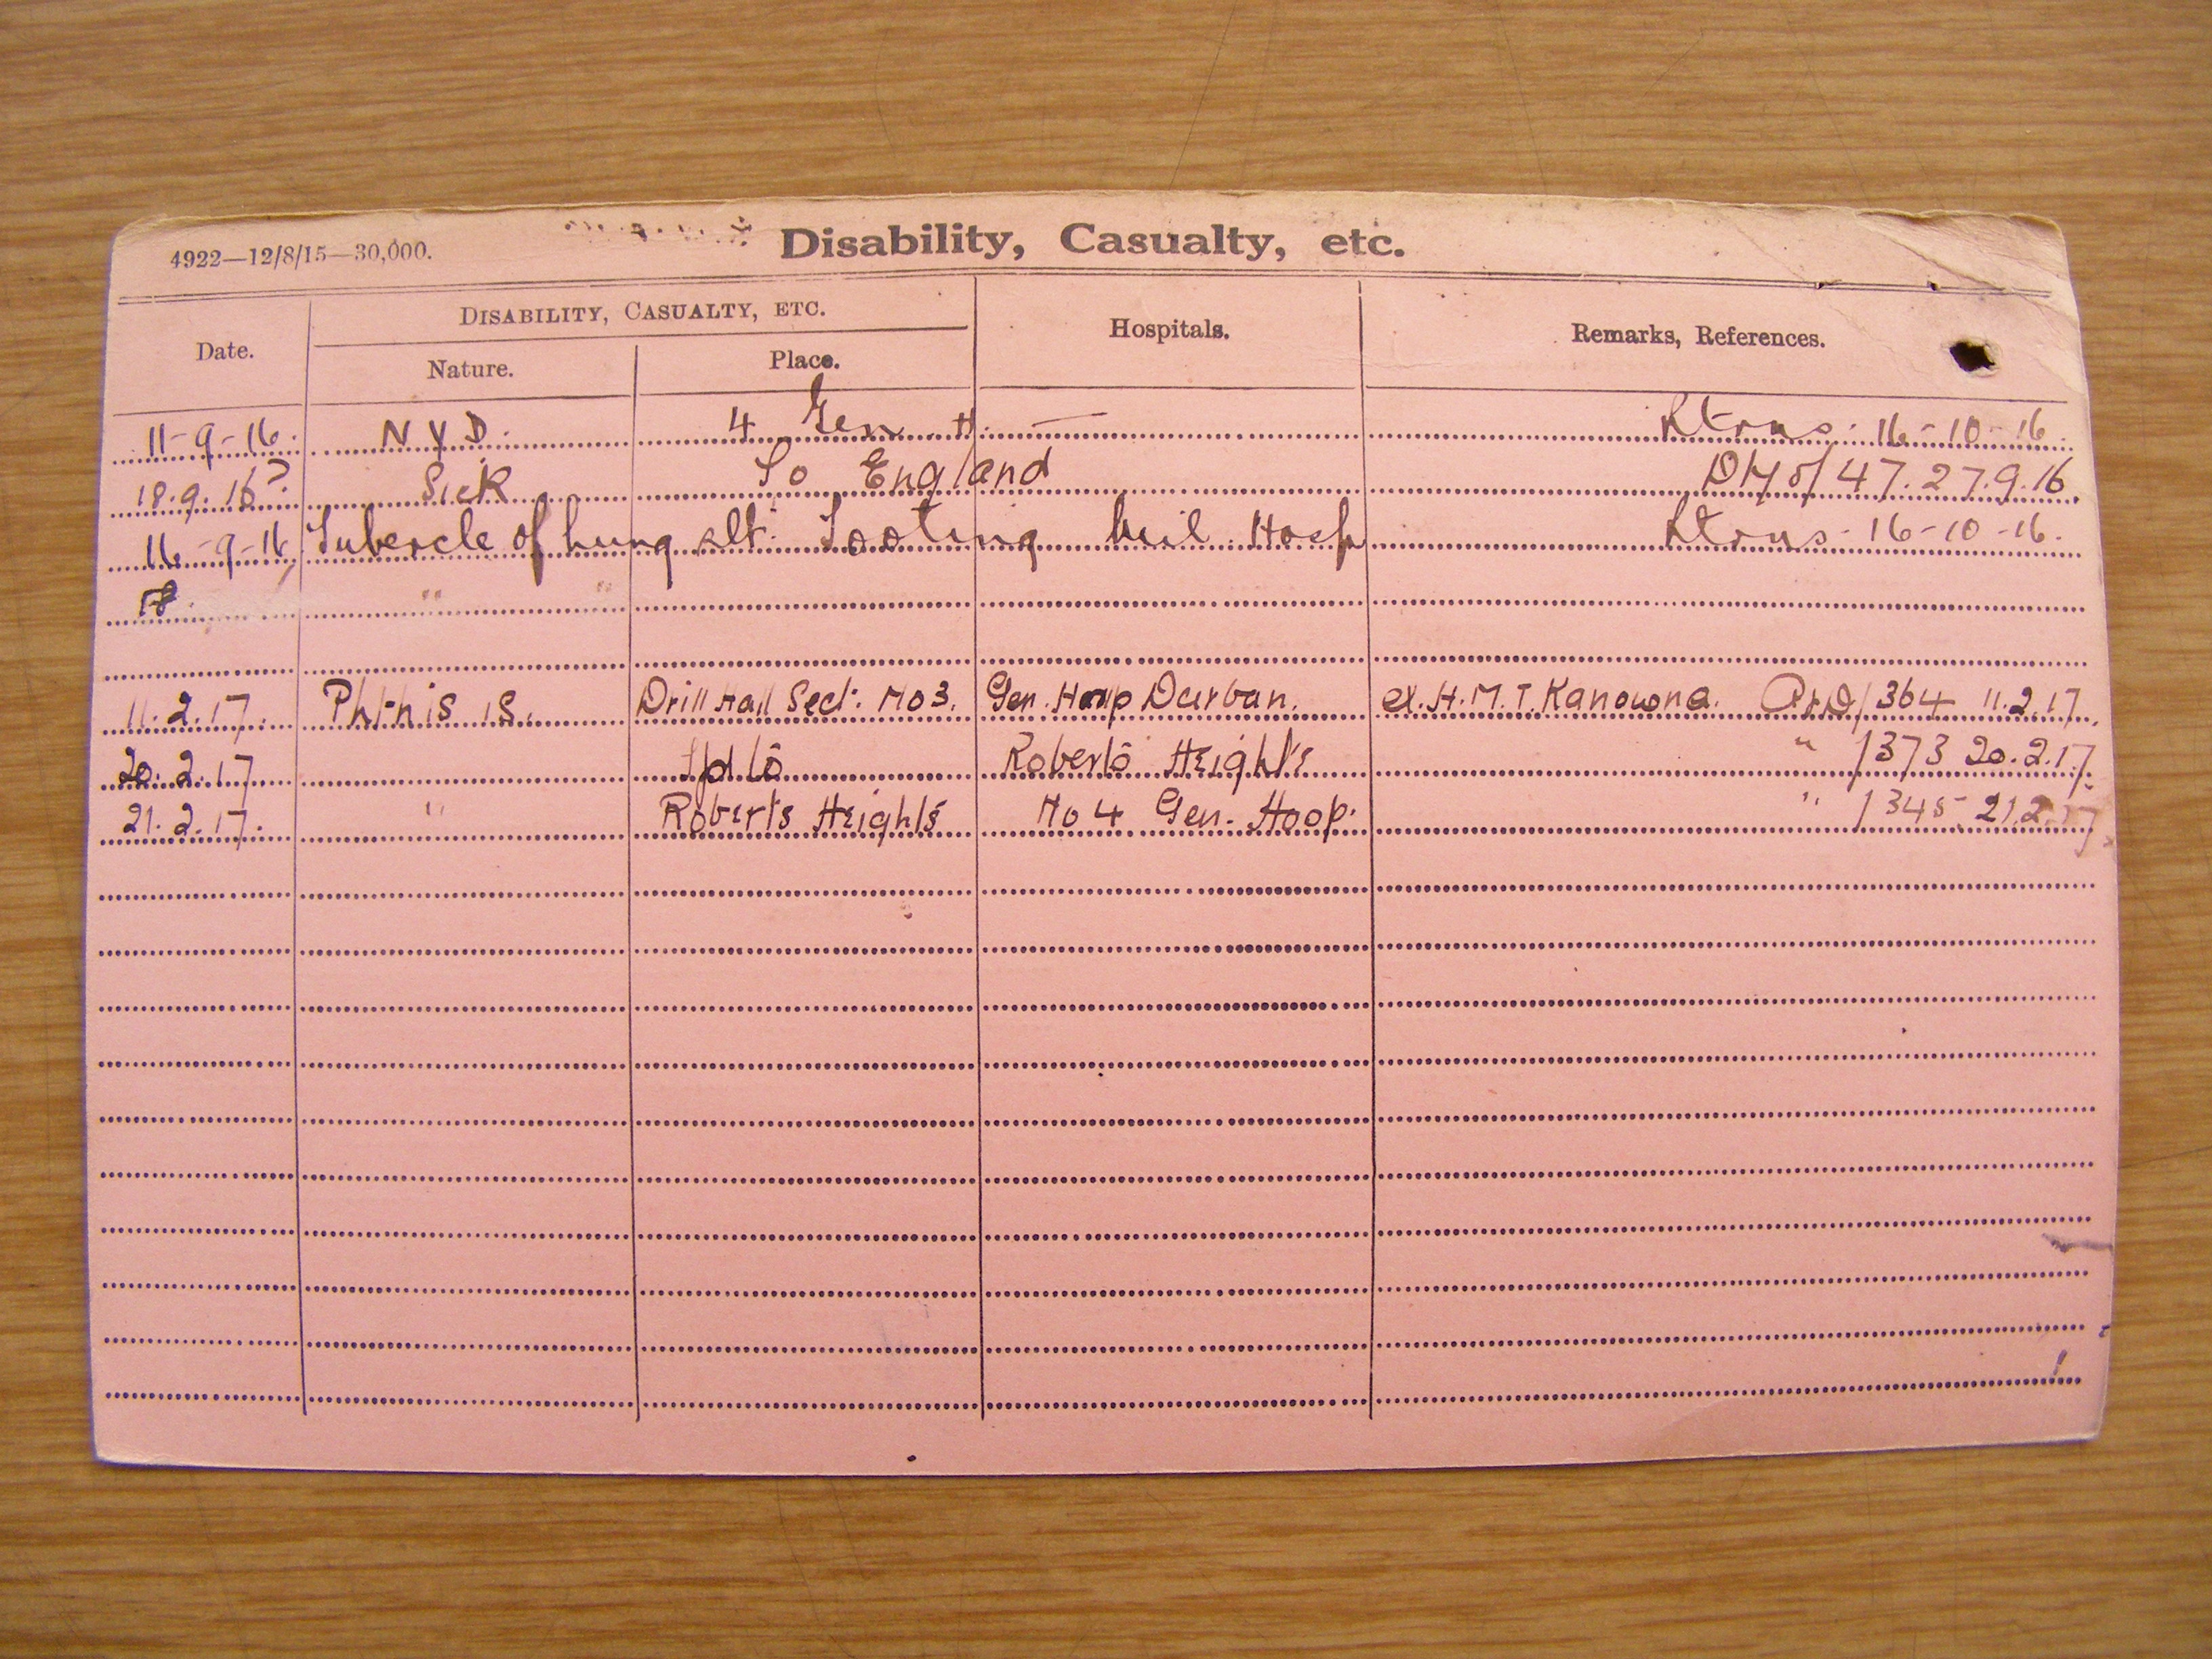 4922—12/8/15—30,000.
Disability, Casualty, etc.
Date.
DISABILITY, CASUALTY, ETC.
Nature.
Place.
Hospitals.
Remarks, References.
11-9-16. N Y D. 4 Gen. H. — Rtrns. 16-10-16.
18.9.16? Sick To England 47. 27.9.16.
16-9-16 Tubercle of Lung slt. Tooting Mil. Hosp Rtrns. 16-10-16.
18 " "
11.2.17. Phthisis. Drill Hall Sect: No 3. Gen. Hosp Durban. ex. H.M.T. Kanowna. 364 11.2.17.
20.2.17. Roberts Heights " /373 20.2.17.
21.2.17. " Roberts Heights No 4 Gen. Hosp. " /345 21.2.17